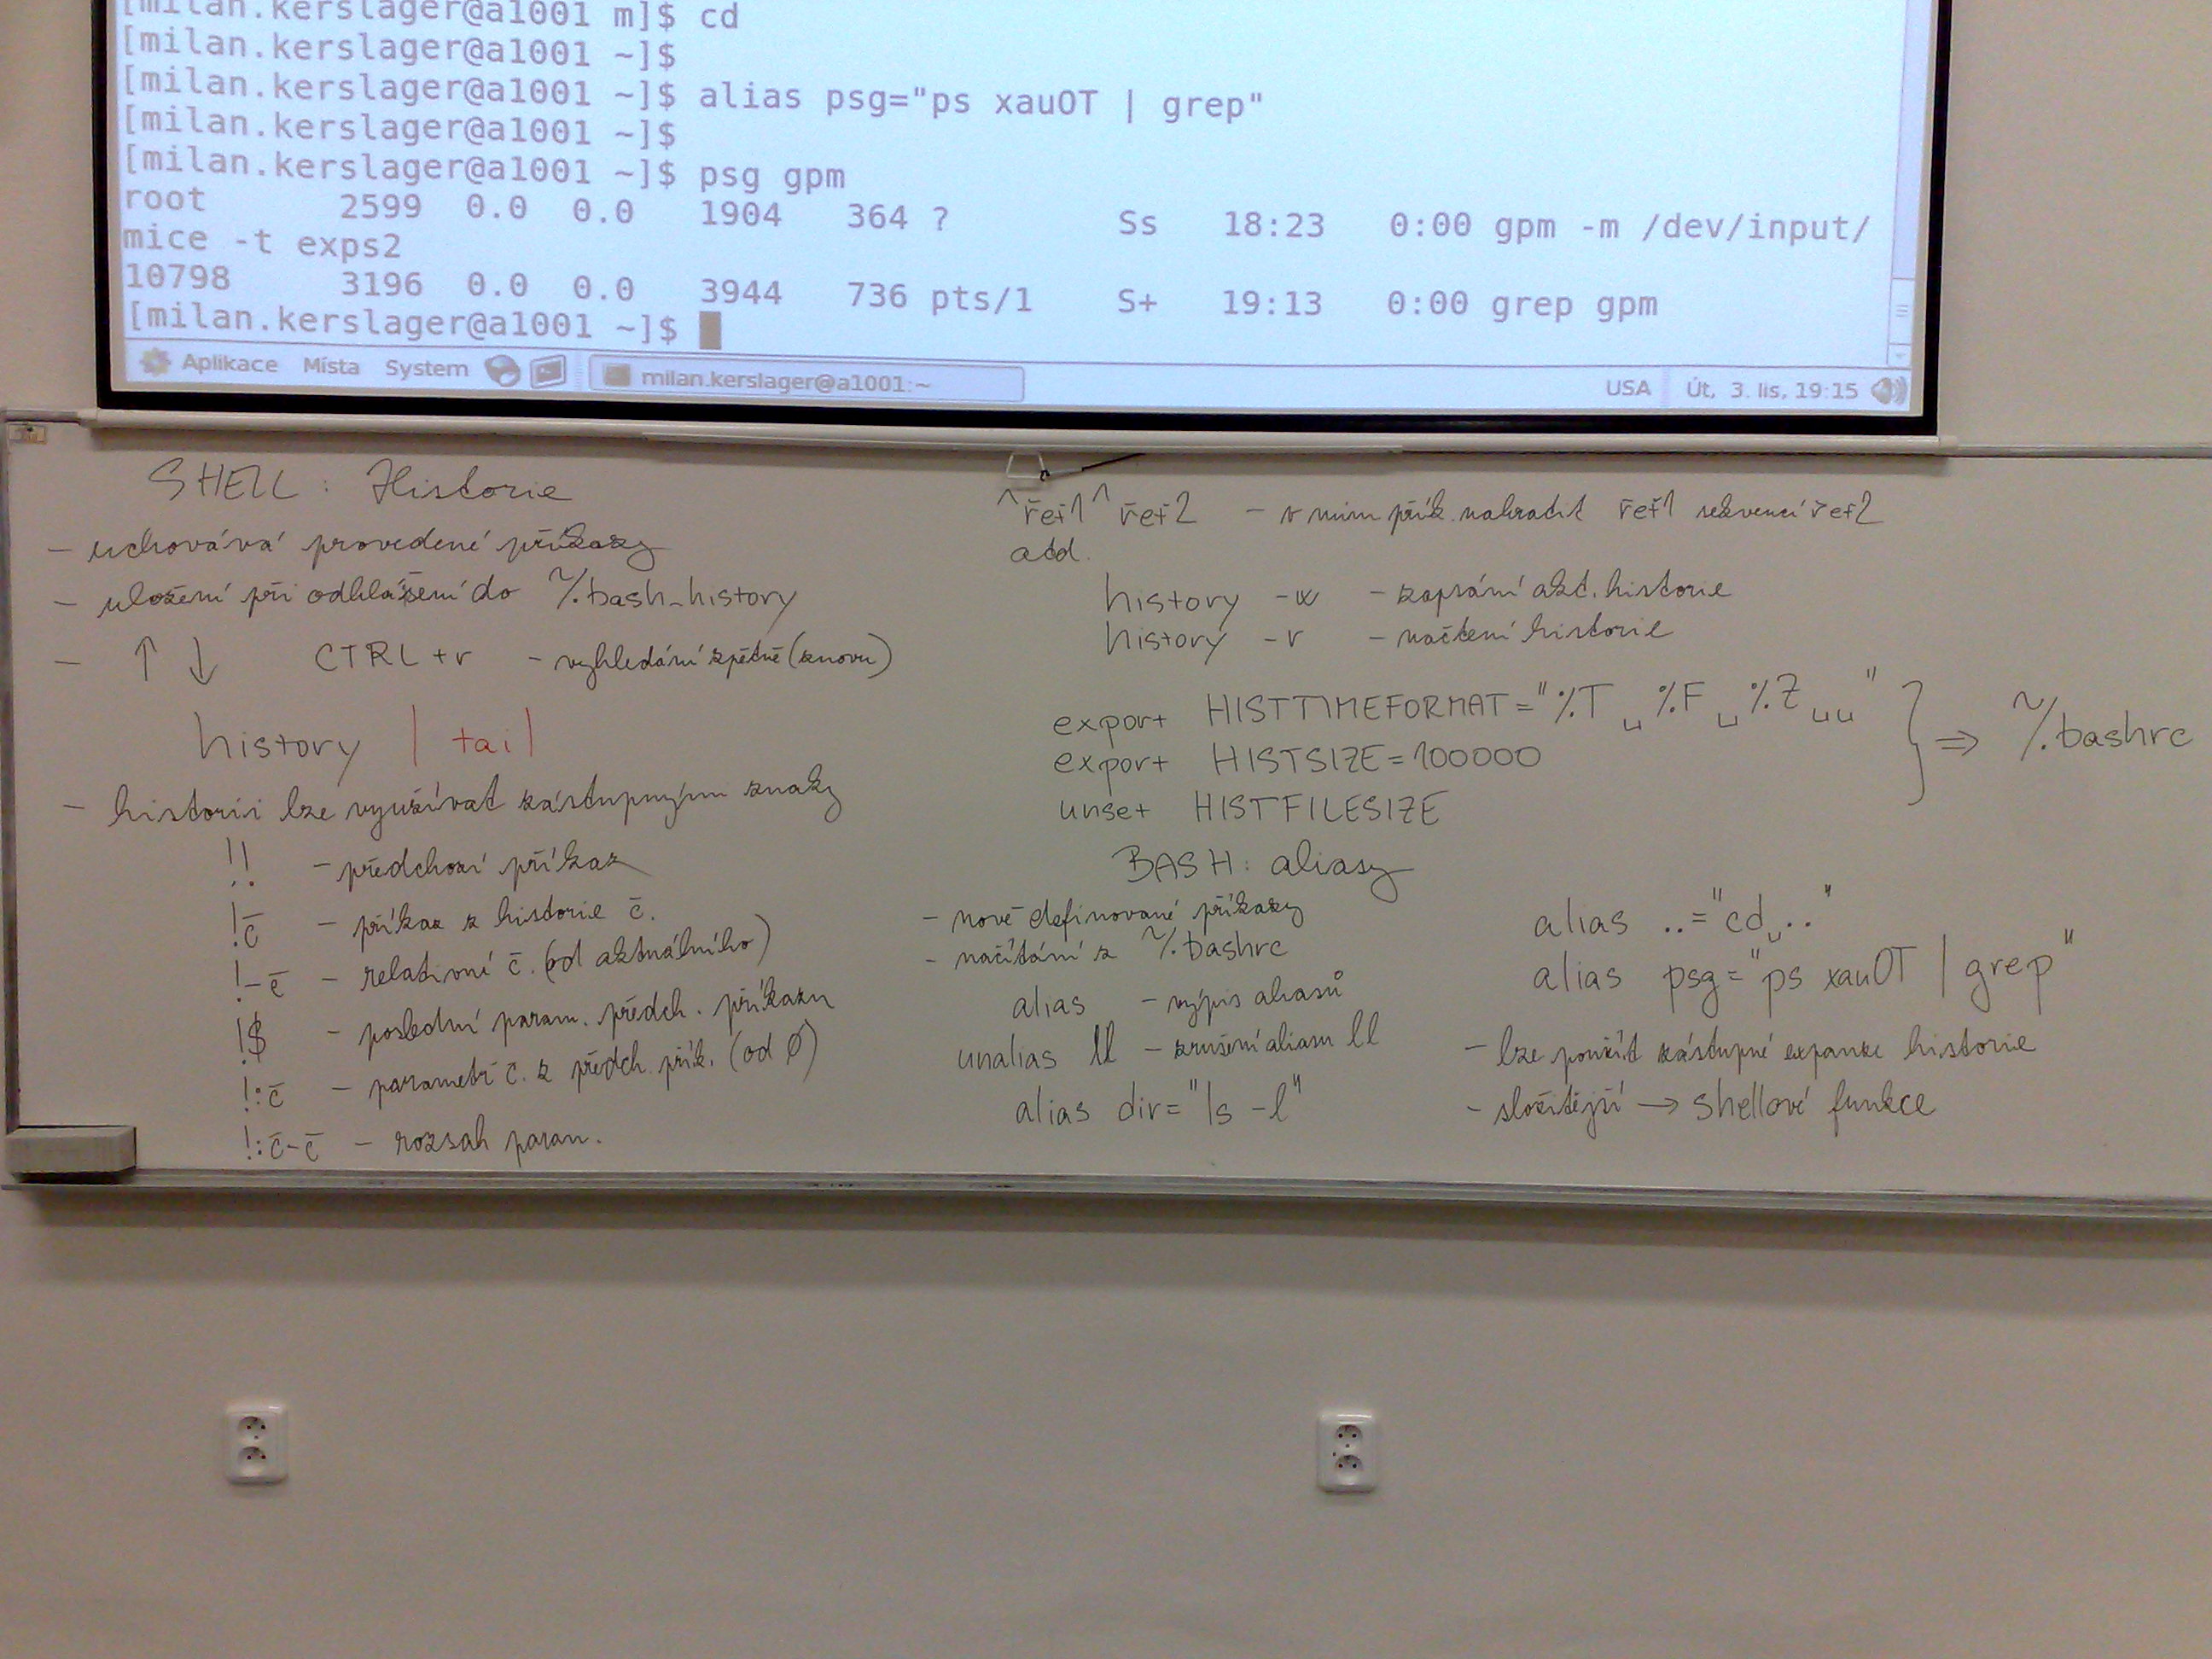 [milan.kerslager@a1001 m]$ cd
[milan.kerslager@a1001 ~]$
[milan.kerslager@a1001 ~]$ alias psg="ps xauOT | grep"
[milan.kerslager@a1001 ~]$
[milan.kerslager@a1001 ~]$ psg gpm
root 2599 0.0 0.0 1904 364 ? Ss 18:23 0:00 gpm -m /dev/input/
mice -t exps2
10798 3196 0.0 0.0 3944 736 pts/1 S+ 19:13 0:00 grep gpm
[milan.kerslager@a1001 ~]$
Aplikace Místa System milan.kerslager@a1001:~ USA Út, 3. lis, 19:15
SHELL: Historie
- uchovává provedené příkazy
- uložení při odhlášení do ~/.bash_history
- ↑ ↓ CTRL+r - vyhledání zpětně (znovu)
history | tail
- historii lze využívat zástupnými znaky
!! - předchozí příkaz
!č - příkaz z historie č.
!-č - relativní č. (od aktuálního)
!$ - poslední param. předch. příkazu
!:č - parametr č. z předch. přík. (od 0)
!:č-č - rozsah param.
^řeť1^řeť2 - v min přík. nahradit řeť1 sekvencí řeť2
add.
history -w - zapsání akt. historie
history -r - načtení historie
export HISTTIMEFORMAT="%T␣%F␣%Z␣␣"
export HISTSIZE=100000
unset HISTFILESIZE
} ⇒ ~/.bashrc
BASH: aliasy
- nově definované příkazy
- načítání z ~/.bashrc
alias - výpis aliasů
unalias ll - zrušení aliasu ll
alias dir="ls -l"
alias ..="cd␣.."
alias psg="ps xauOT | grep"
- lze použít zástupné expanze historie
- složitější → shellové funkce